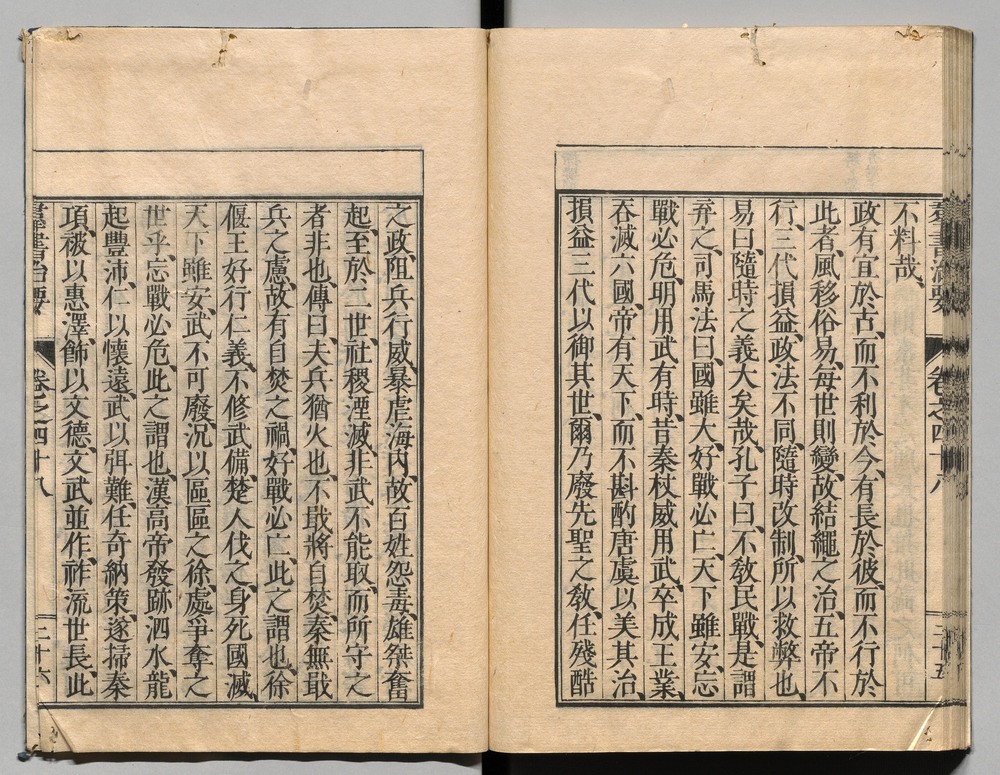 羣書治要 卷之四十八 二十五
不料哉、
政有宜於古、而不利於今、有長於彼、而不行於
此者、風移俗易、每世則變、故結繩之治、五帝不
行、三代損益、政法不同、隨時改制、所以救弊也、
易曰、隨時之義大矣哉、孔子曰、不敎民戰、是謂
弃之、司馬法曰、國雖大、好戰必亡、天下雖安、忘
戰必危、明用武有時、昔秦杖威用武、卒成王業、
吞滅六國、帝有天下、而不斟酌唐虞以美其治、
損益三代以御其世、爾乃廢先聖之敎、任殘酷
之政、阻兵行威、暴虐海內、故百姓怨毒、雄桀奮
起、至於二世、社稷湮滅、非武不能取、而所守之
者非也、傳曰、夫兵猶火也、不戢將自焚、秦無戢
兵之慮、故有自焚之禍、好戰必亡、此之謂也、徐
偃王好行仁義、不修武備、楚人伐之、身死國滅、
天下雖安、武不可廢、況以區區之徐、處爭奪之
世乎、忘戰必危、此之謂也、漢高帝發跡泗水、龍
起豐沛、仁以懷遠、武以弭難、任奇納策、遂掃秦
項、被以惠澤、飾以文德、文武並作、祚流世長、此
羣書治要 卷之四十八 二十六